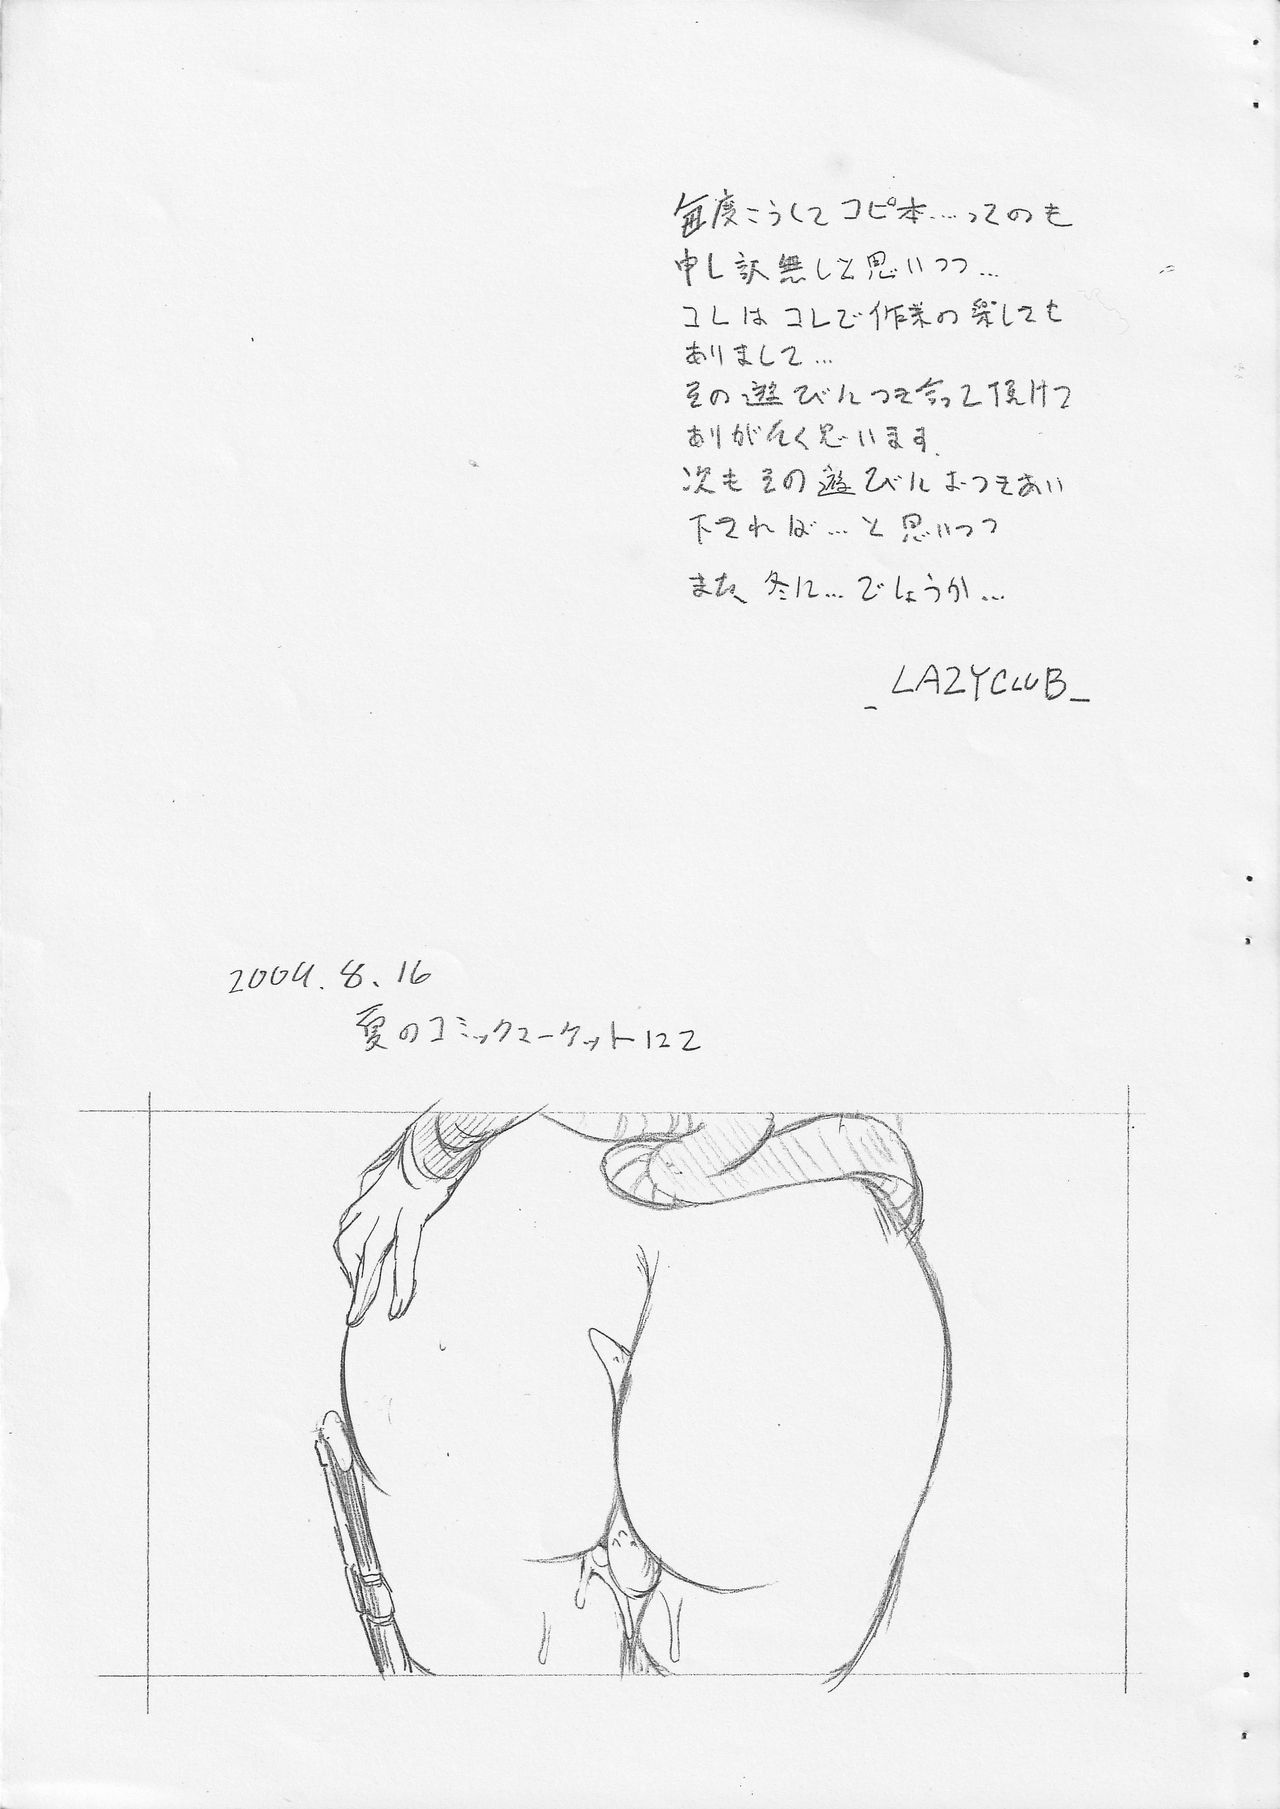 毎度こうしてコピ本…ってのも
申し訳無しと思いつつ…
コレはコレで作業の楽しても
ありまして…
その遊びにつき合って頂けて
ありがたく思います.
次もその遊びにおつきあい
下されば…と思いつつ
また、冬に…でしょうか…
_LAZYCLUB_
2009.8.16
夏のコミックマーケットにて